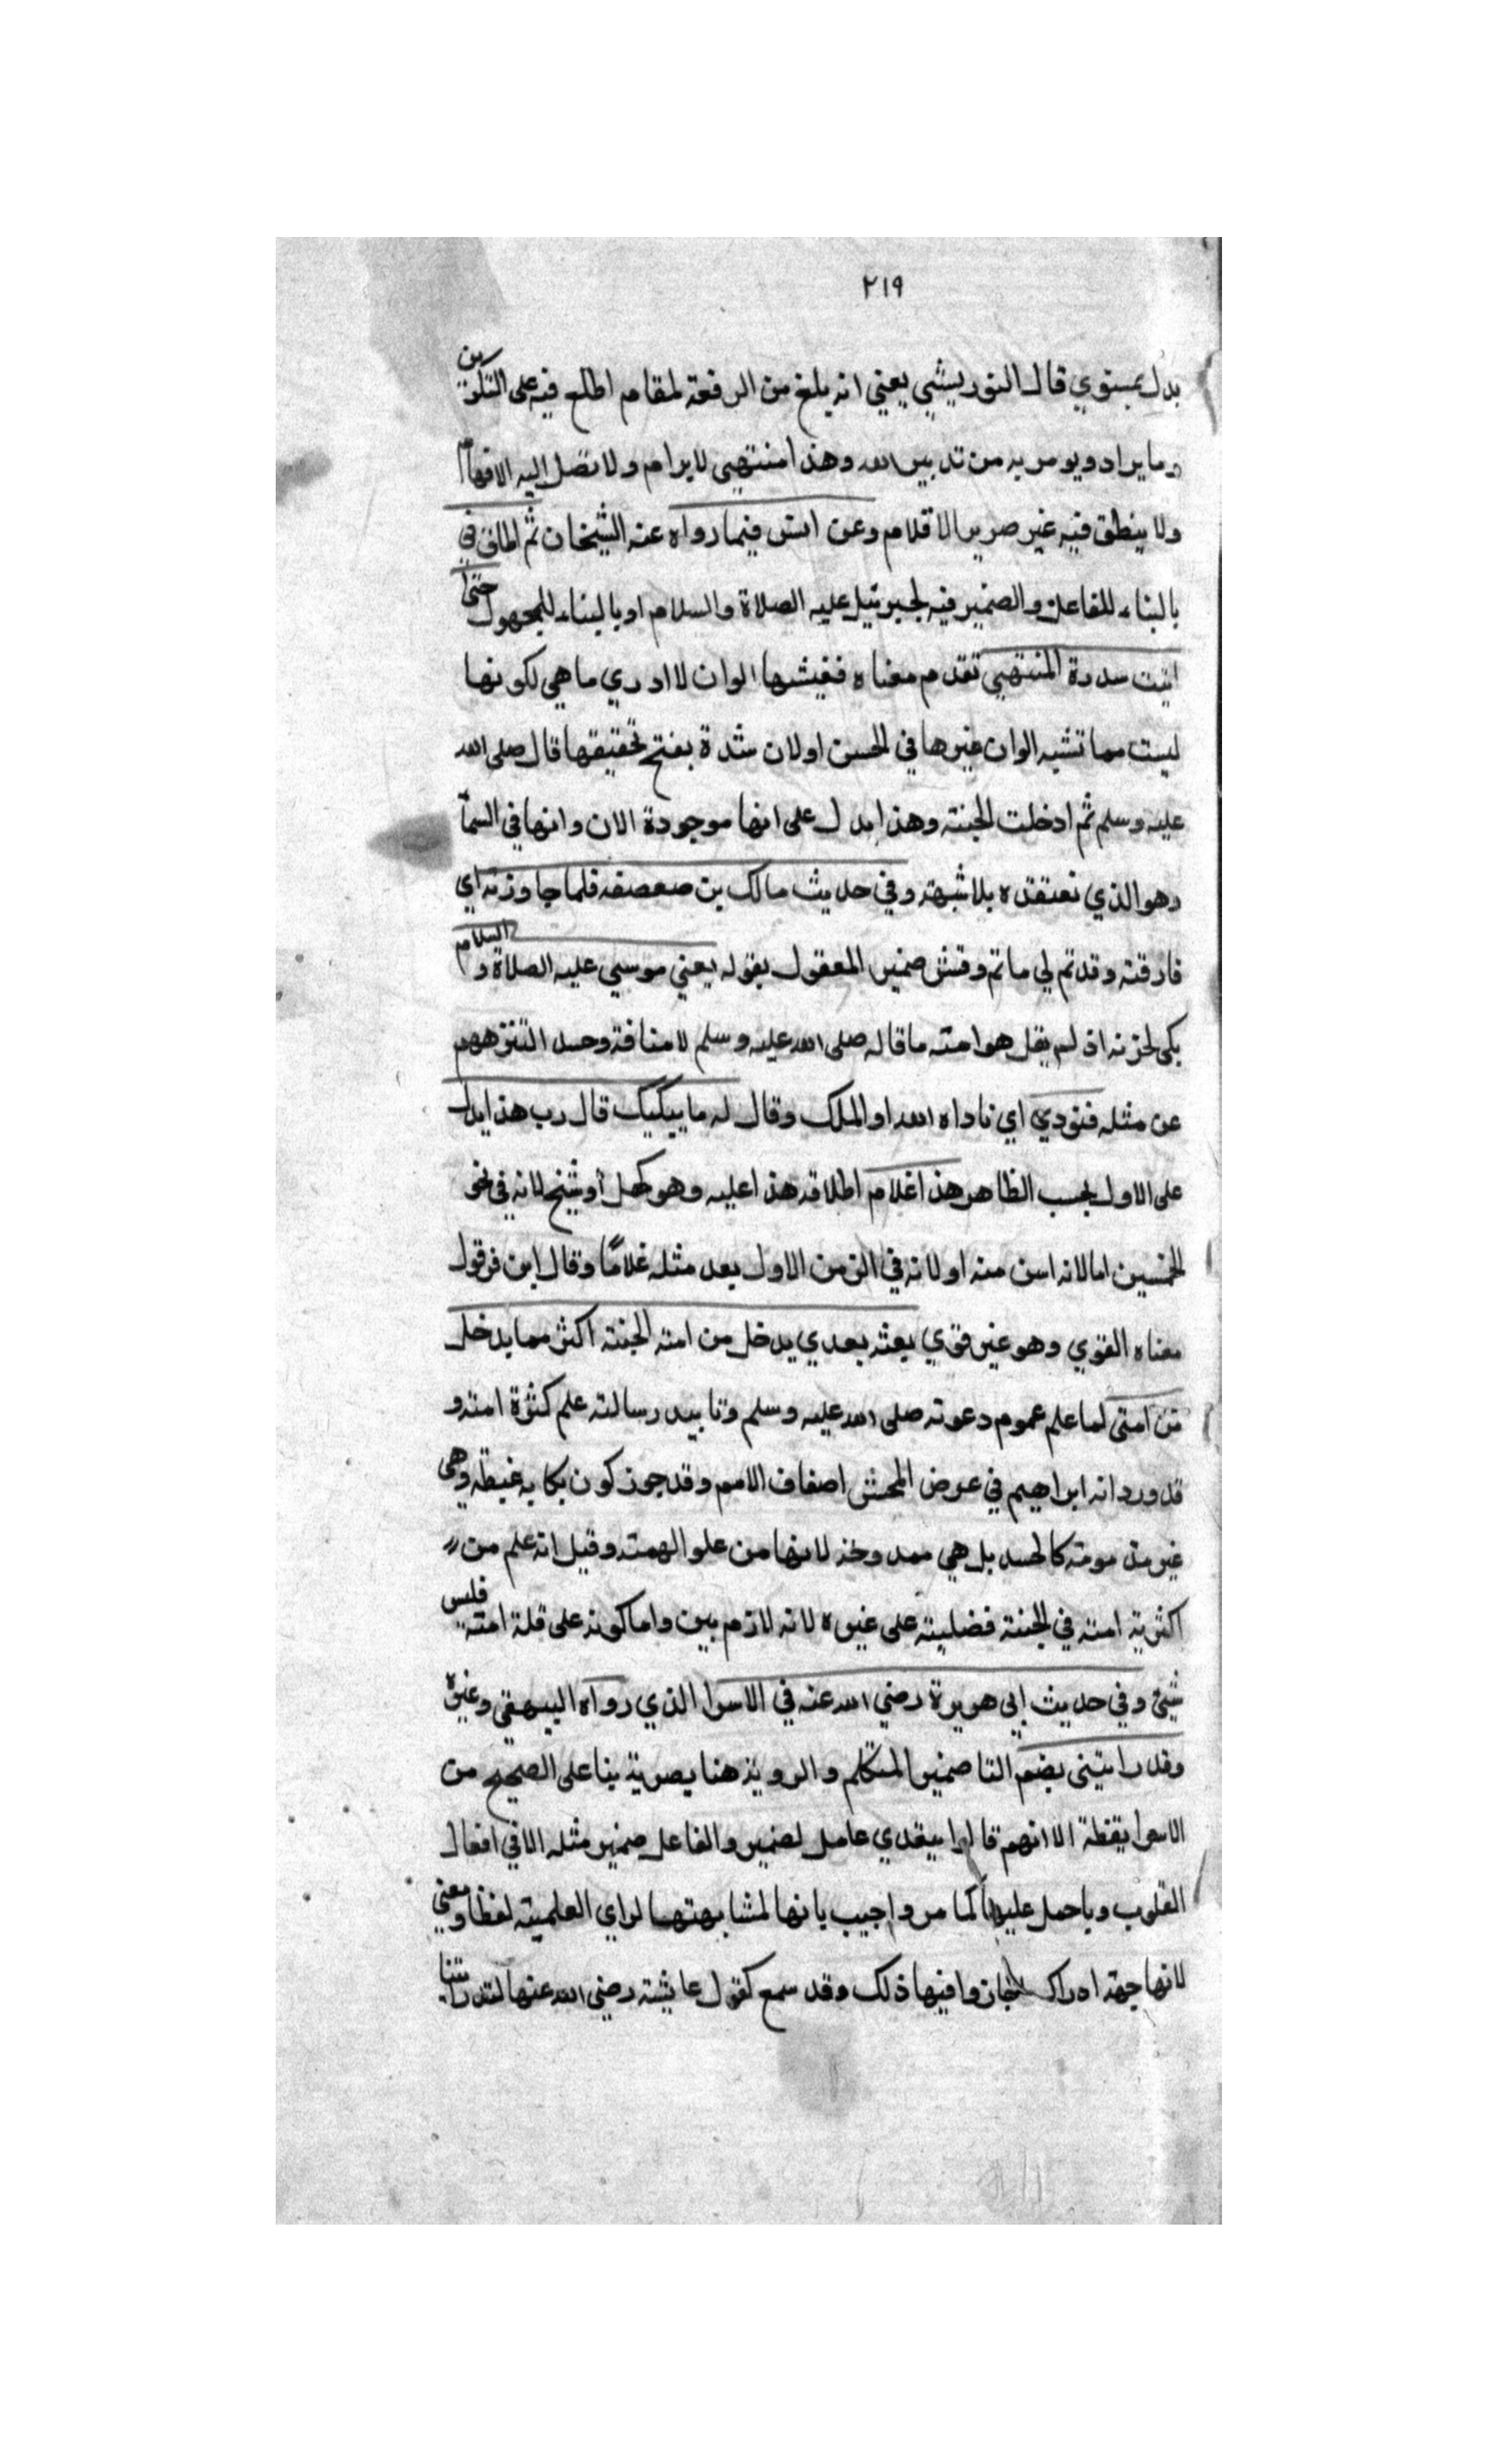 ٢١٩
بدل بمستوي قال التوربشتي يعني انه بلغ من الرفعة لمقام اطلع فيه على التكوين
وما يراد ويومر به من تدبير الله وهذا منتهى لا يرام ولا تصل اليه الافهام
ولا ينطق فيه غير صرير الاقلام وعن انس فيما رواه عنه الشيخان ثم انطلق بي
بالبناء للفاعل والضمير فيه لجبرئيل عليه الصلاة والسلام او بالبناء للمجهول حتى
اتيت سدرة المنتهى تقدم معناه فغيشها الوان لا ادري ما هي لكونها
ليست مما تشبه الوان غيرها في الحسن او لان شدة بفتح تحقيقها قال صلى الله
عليه وسلم ثم ادخلت الجنة وهذا يدل على انها موجودة الان وانها في السمآ
وهو الذي نعتقده بلا شبهة وفي حديث مالك بن صعصعه فلما جاوزته اي
فارقته وقد تم لي ما تم وفسر ضمير المعقول بقوله يعني موسى عليه الصلاة والسلام
بكى لحزنه اذ لم يقل هو امته ما قاله صلى الله عليه وسلم لا منافة وحسد التنزههم
عن مثله فنودي اي ناداه الله او الملك وقال له ما يبكيك قال رب هذا يدل
على الاول بحسب الظاهر هذا غلام اطلاقه هذا عليه وهو كهل أو شيخ لانه في نحو
الخمسين اما لانه اسن منه او لانه في الزمن الاول يعد مثله غلامًا وقال ابن قرقول
معناه القوي وهو غير قوي بعثه بعدي يدخل من امته الجنة اكثر مما يدخل
من امتي لما علم عموم دعوته صلى الله عليه وسلم وتابيد رسالته علم كثرة امته و
قد ورد انه ابراهيم في عرض المحشر اصفاف الامم وقد جوز كون بكايه غبطه وهي
غير مذمومة كالحسد بل هي ممدوخة لانها من علو الهمة وقيل انه علم من
اكثرية امته في الجنة فضليته على غيره لانه لازم بين واما كونه على قلة امته فليس
شيئ وفي حديث ابي هريرة رضي الله عنه في الاسرا الذي رواه البيهقي وغيره
وقد رايتني بضم التا ضمير المتكلم والروية هنا بصرية بنا على الصحيح من
الاسرا يقظة الا انهم قالوا يتعدي عامل لضمير والفاعل ضمير مثله الا في افعال
القلوب وبا حمل عليها كما مر واجيب بانها لمشابهتها لراي العلمية لفظا ومعني
لانها جهة ادراك فجازوا فيها ذلك وقد سمع كقول عايشة رضي الله عنها لقد رايتنا